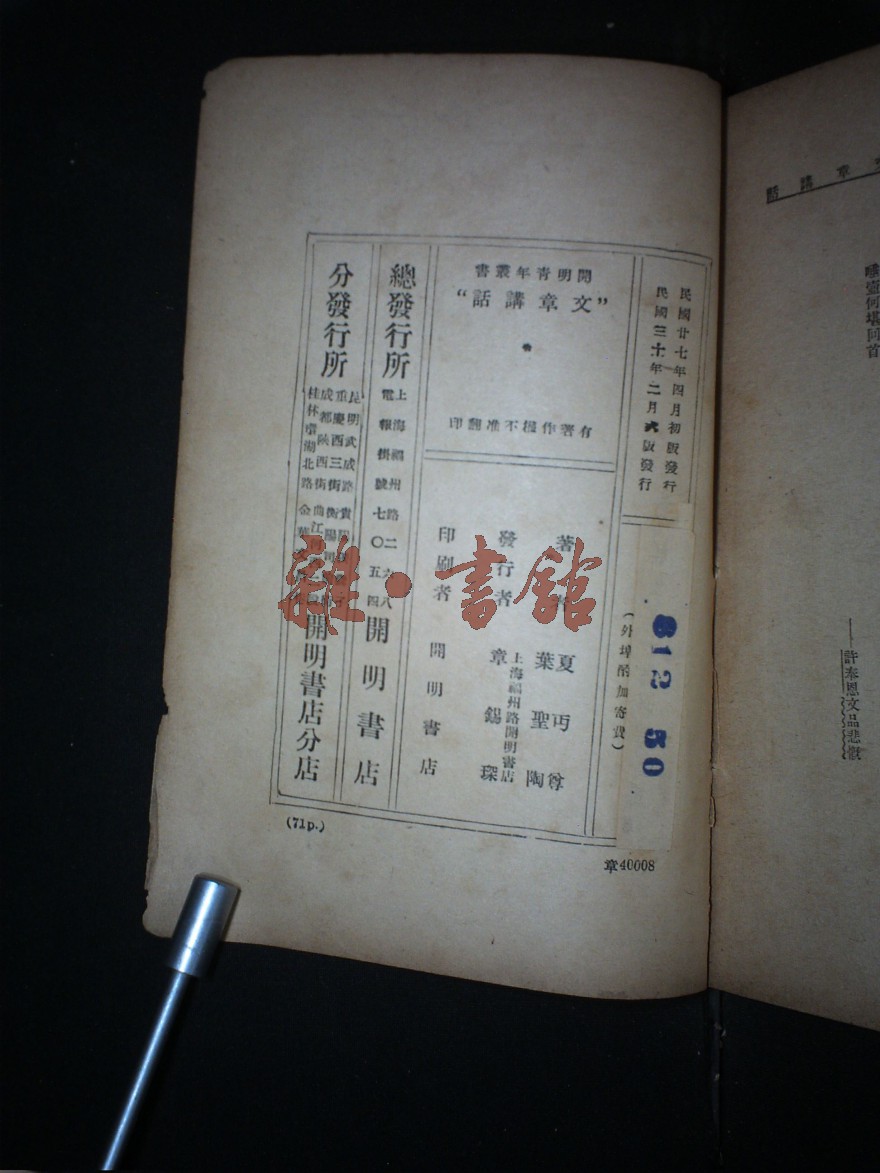 民國廿七年四月初版發行
民國三十年二月六版發行
(外埠酌加寄費)
$12 50
開明青年叢書
“文章講話”
有著作權不准翻印
著者
夏丏尊
葉聖陶
發行者
章錫琛
上海福州路開明書店
印刷者
開明書店
總發行所
上海福州路二六八
電報掛號七〇五四
開明書店
分發行所
昆明武成路
重慶西三街
成都陝西街
桂林環湖北路
開明書店分店
(71p.)
章40008
文章講話
唾壺何堪回首
——許奉恩文品悲慨
雜·書館